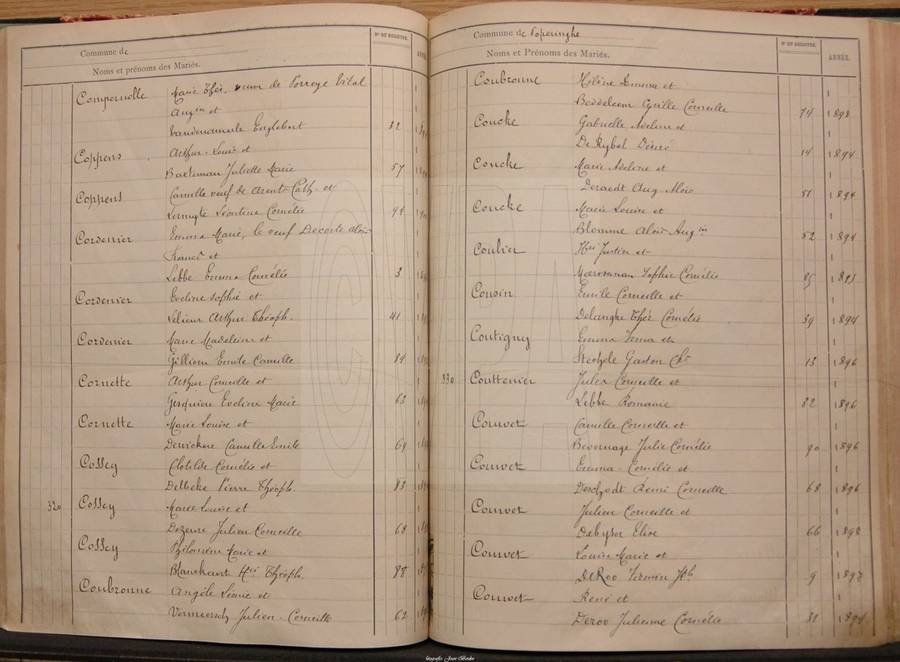 Commune de
Noms et prénoms des Mariés.
N° DU REGISTRE.
Compernolle Marie Thér. veuve de Porreye Vital
Augin et
Vandenameele Englebert 32
Coppens Arthur Louis et
Baeteman Juliette Marie 57
Coppens Camille veuf de Arent Cath. et
Lermyte Léontine Cornélie 94
Cordenier Emma Marie, le veuf Decorte Aloïs
Francs et
Libbe Emma Cornélie 3
Cordenier Eveline Sophie et
Lelieur Arthur Théoph. 41
Cordenier Marie Madeleine et
Gilliom Emile Camille 84
Cornette Arthur Corneille et
Gesquiere Eveline Marie 63
Cornette Marie Louise et
Derickere Camille Emile 69
Cossey Clotilde Cornélie et
Delbeke Pierre Théoph. 83
320 Cossey Marie Louise et
Dezeure Julien Corneille 68
Cossey Philomène Marie et
Blanckaert Hri Théoph. 88
Coubronne Angèle Léonie et
Vermeersch Julien Corneille 62
Commune de Poperinghe
Noms et Prénoms des Mariés
N° DU REGISTRE.
ANNÉE.
Coubronne Hélène Emma et
Beddeleem Cyrille Corneille 74 1898
Coucke Gabrielle Adeline et
De Rybel Désiré 14 1894
Coucke Marie Adeline et
Deraedt Aug. Aloïs 51 1894
Coucke Marie Louise et
Blomme Aloïs Augin 52 1894
Coulier Hri Justin et
Sophie Cornélie 85 1893
Cousin Emile Corneille et
Delanghe Thér Cornélie 39 1894
Coutigny Emma Irma et
Gaston Chs 13 1896
330 Couttenier Jules Corneille et
Libbe Romanie 82 1896
Couvet Camille Corneille et
Beversage Julie Cornélie 90 1896
Couvet Emma Cornélie et
Deschodt Rémi Corneille 68 1896
Couvet Julien Corneille et
Debyser Elise 66 1892
Couvet Louise Marie et
DeRoo Firmin Jph 9 1897
Couvet René et
Deroo Julienne Cornélie 31 1894